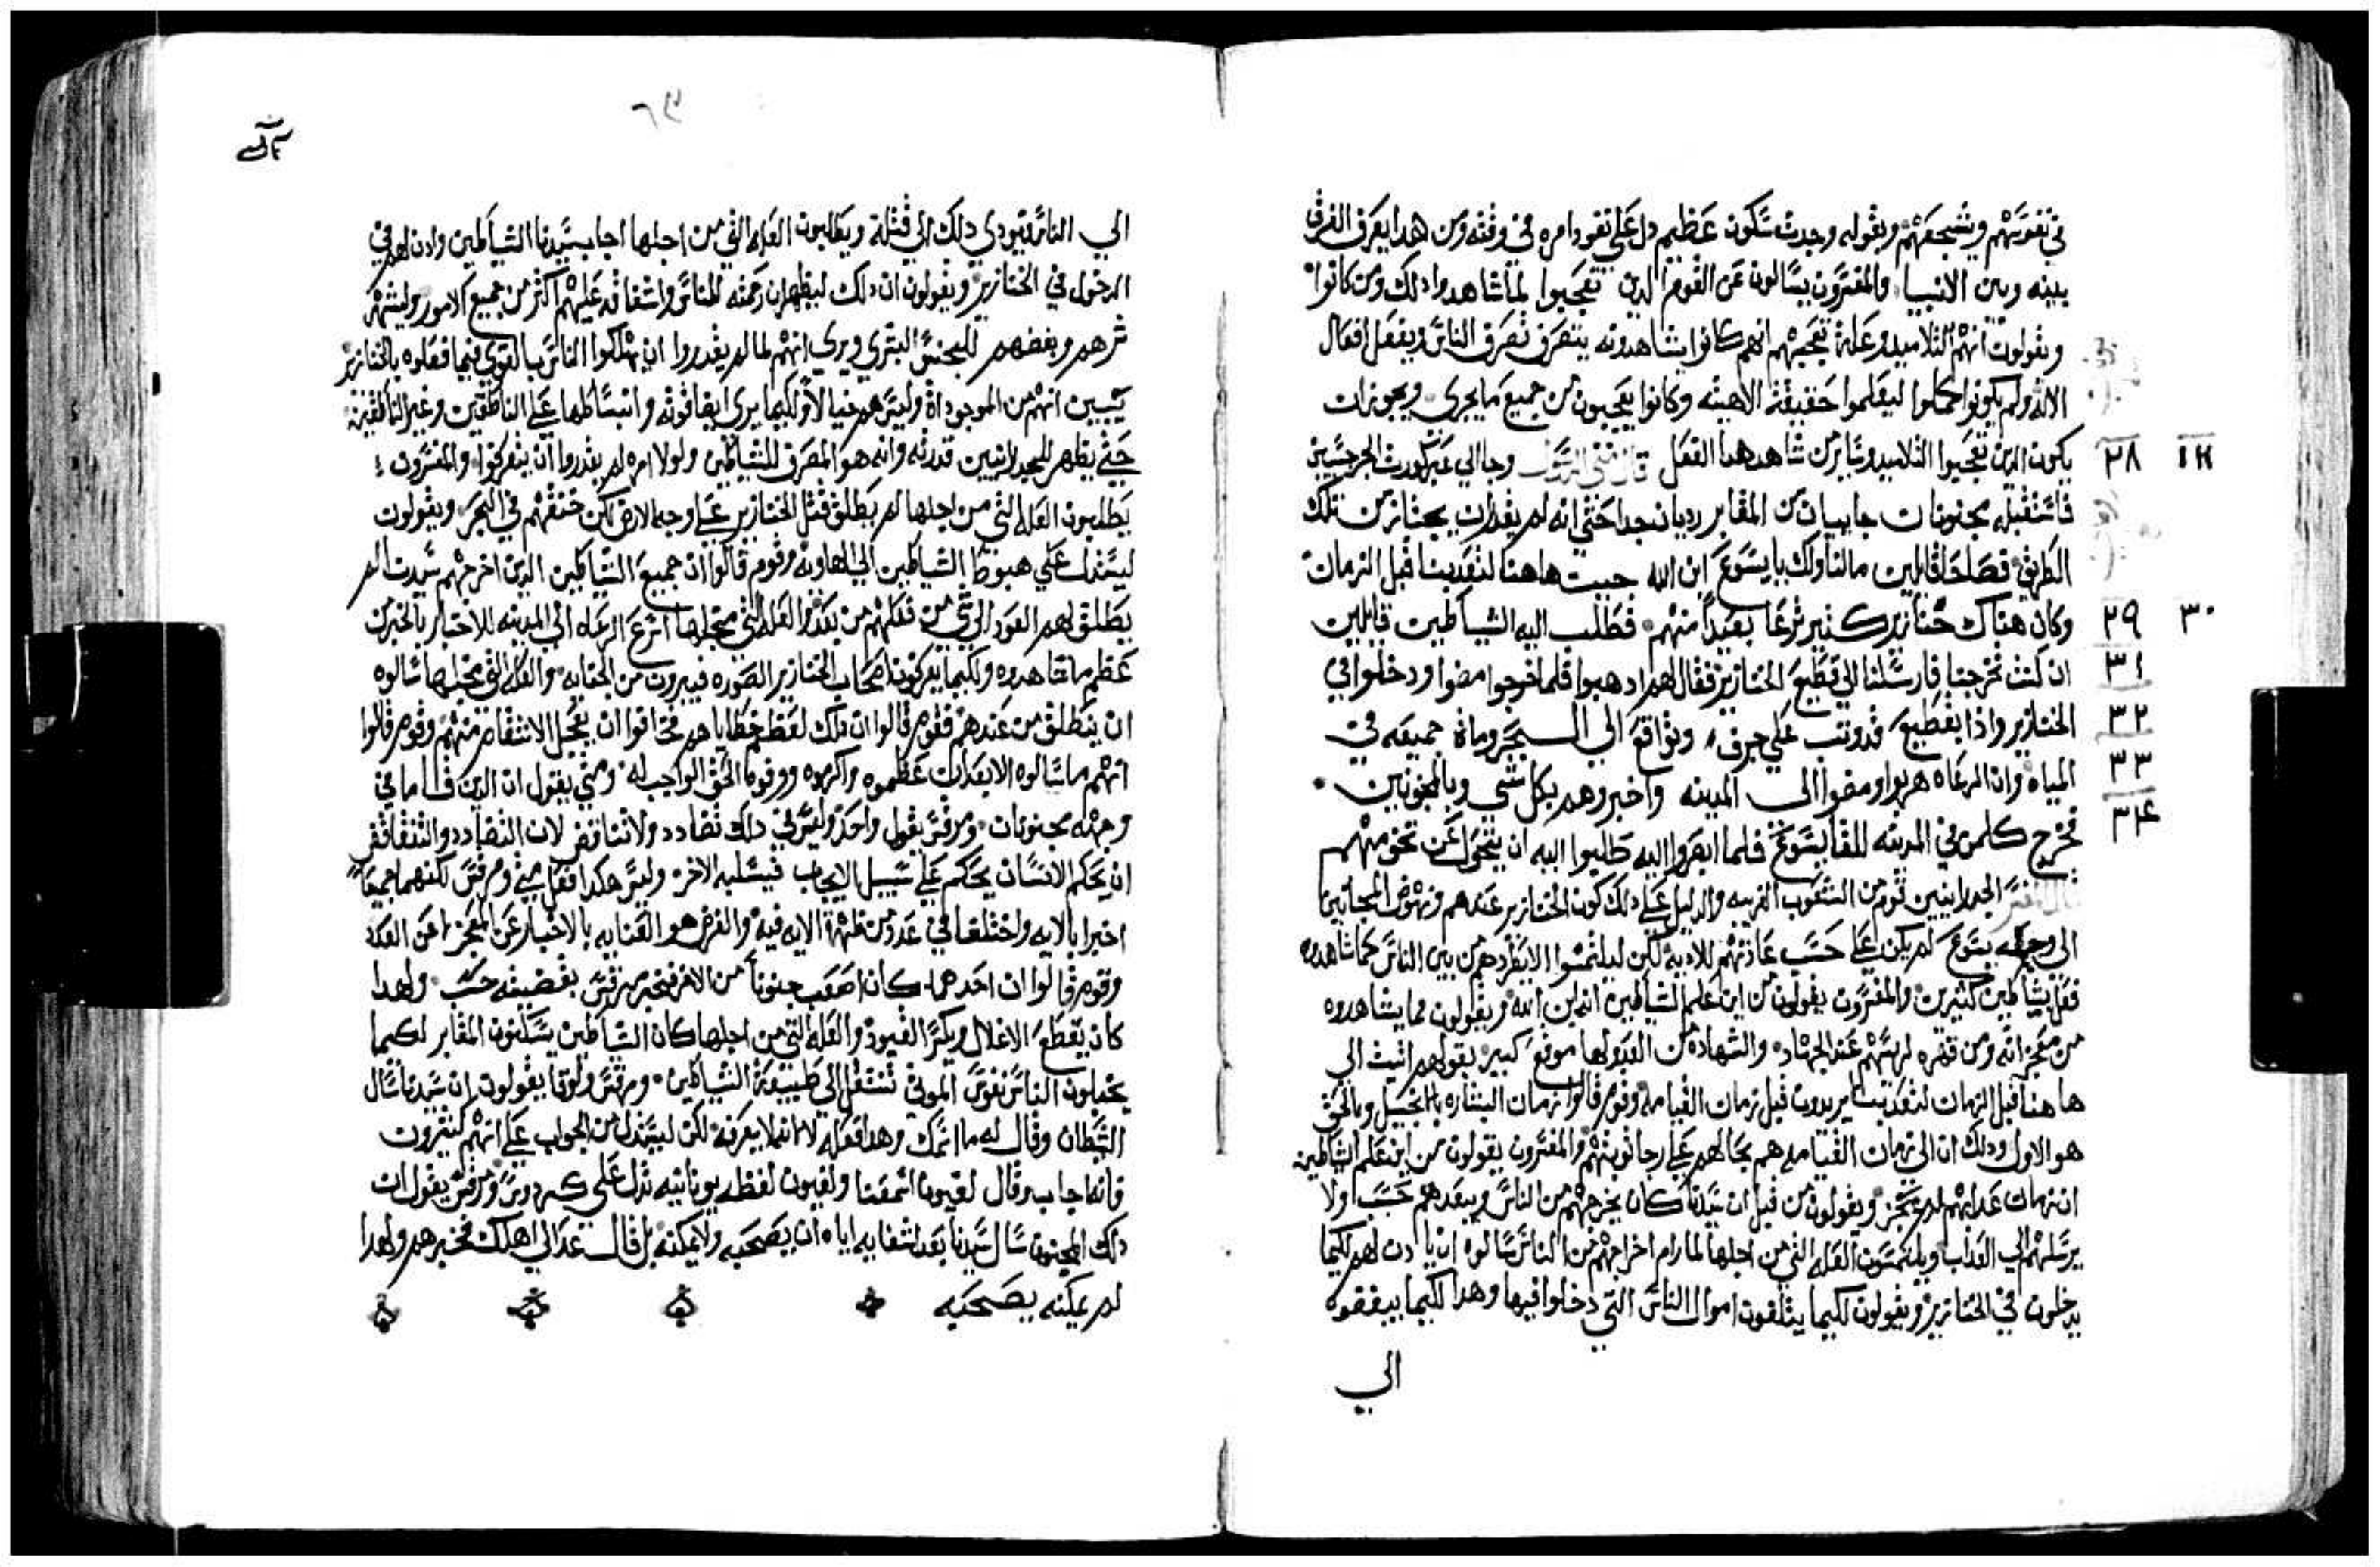 في تقويتهم وتشجيعهم وبقوله وجدت سكون عظيم دل علي نفود امره في وقته ومن هدا يعرف الفرق
بينه وبين الانبيا والمفسرون يسالون عن القوم الدين تعجبوا لما شاهدوا دلك ومن كانوا
ويقولون انهم التلاميد وعلة تعجبهم انهم كانوا يشاهدونه يتصرف تصرف الناس ويفعل افعال
الاله ولم يكونوا كملوا ليعلموا حقيقة الاهيته وكانوا يعجبون من جميع ما يجري ويجوز ان
يكون الدين تعجبوا التلاميد وساير من شاهد هدا الفعل قال متي الرسول وجا الي عبر كورة الجرجسيين
٢٨
فاستقبله مجنونان جاييان من المقابر رديان جدا حتي انه لم يقدر ان يجتاز من تلك
الطريق فصاحا قايلين مالنا ولك يا يسوع ابن الله جيت هاهنا لتعدبنا قبل الزمان
وكان هناك خنازير كثير ترعا بعيدا منهم فطلب اليه الشياطين قايلين
٢٩ ٣٠
ان كنت تخرجنا فارسلنا الي قطيع الخنازير فقال لهم ادهبوا فلما خرجوا مضوا ودخلوا في
٣١
الخنازير واذا بقطيع قد وتب علي جرف وتواقع الي البحر ومات جميعه في
٣٢
المياه وان الرعاه هربوا ومضوا الى المدينه واخبروهم بكل شي وبالمجنونين
٣٣
فخرج كلمن في المدينه للقا يسوع فلما ابصروا اليه طلبوا اليه ان يتحول عن تخومهم
٣٤
قال المفسر الجدرانيين قوم من الشعوب الغريبه والدليل علي دلك كون الخنازير عندهم ونهوض المجانين
الي وجه يسوع لم يكن علي حسب عادتهم للاديه لكن ليلتمسوا الا يطردهم من بين الناس كما شاهدوه
فعل بشياطين كثيرين والمفسرون يقولون من اين علم الشياطين انه ابن الله ويقولون مما يشاهدوه
من معجزاته ومن قهره لرييسهم عند الجهاد والشهاده من العدو لها موقع كبير بقولهم اتيت الى
ها هنا قبل الزمان لتعدبنا يريدون قبل زمان القيامه وقوم قالوا زمان البشاره بالانجيل وبالحق
هو الاول ودلك ان الي زمان القيامه هم بحالهم علي رجا توبتهم والمفسرون يقولون من اين علم الشياطين
ان زمان عدابهم لم يجز ويقولون من قبل ان سيدنا كان يخرجهم من الناس ويبعدهم حسب ولا
يرسلهم الي العداب ويلتمسون العله التي من اجلها لما رام اخراجهم من الناس سالوه ان يادن لهم لكيما
يدخلون في الخنازير ويقولون لكيما يتلفون اموال الناس التي دخلوا فيها وهدا لكيما يبغضوه
الي
٦٣
الي الناس فيودي دلك الي قتله ويطلبون العله التي من اجلها اجاب سيدنا الشياطين وادن لهم في
الدخول في الخنازير ويقولون ان دلك ليظهر ان رحمته للناس واشفاقه عليهم اكثر من جميع الامور وليشهر
شرهم وبغضهم للجنس البشري ويري انهم لما لم يقدروا ان يهلكوا الناس بالقوي فبما فعلوه بالخنازير
يتبين انهم من الموجوداة وليس هم فنيا الاولكيما يرى ايضا قوته وانبساطها علي الناطقين وغير الناطقين
حتي يظهر للجدرانيين قدرته وانه هو المصرف للشياطين ولولا امره لم يقدروا ان يتحركوا والمفسرون
يطلبون العله التي من اجلها لم يطلق قتل الخنازير علي وجه الارض لكن خنقهم في البحر ويقولون
ليستدل علي هبوط الشياطين الي الهاويه وقوم قالوا ان جميع الشياطين الدين اخرجهم سيدنا لم
يطلق لهم العود الي شي من فعلهم من بعد والعله التي من اجلها اسرع الرعاه الي المدينه للاخبار بالخبر من
عظم ما شاهدوه ولكيما يعرفون اصحاب الخنازير الصوره فيبرون من الجنايه والعله التي من اجلها سالوه
ان ينطلق من عندهم فقوم قالوا ان دلك لعظم خطاياهم فخافوا ان يعجل الانتقام منهم وقوم قالوا
انهم ما سالوه الا بعد ان عظموه واكرموه ووفوه الحق الواجب له ومتي يقول ان الدين قاما في
وجهه مجنونان ومرقس يقول واحد وليس في دلك تضادد ولا تناقض لان التضادد والتناقض
ان يحكم الانسان بحكم علي سبيل الايجاب فيسلبه الاخر وليس هكدا فعل متي ومرقس لكنهما جميعا
اخبرا بالايه واختلفا في عدد من ظهرة الايه فيه والغرض هو العنايه بالاخبار عن المعجز لا عن العدد
وقوم قالوا ان احدهما كان اصعب جنونا من الاخر فخبر مرقس بقضيته حسب ولهدا
كان يقطع الاغلال ويكسر القيود والعله التي من اجلها كان الشياطين يسكنون المقابر لكيما
يخيلون الناس نفوس الموتي تنتقل الي طبيعة الشياطين ومرقس ولوقا يقولون ان سيدنا سال
الشيطان وقال له ما اسمك وهدا فعله لا لانه لا يعرفه لكن ليستدل من الجواب علي انهم كثيرون
فانه اجابه وقال لغيون اسمنا ولغيون لفظه يونانيه تدل علي كردوس ومرقس يقول ان
دلك المجنون سال سيدنا بعد شفايه اياه ان يصحبه ولا يمكنه بل قال عد الي اهلك فخبرهم ولهدا
لم يمكنه يصحبه